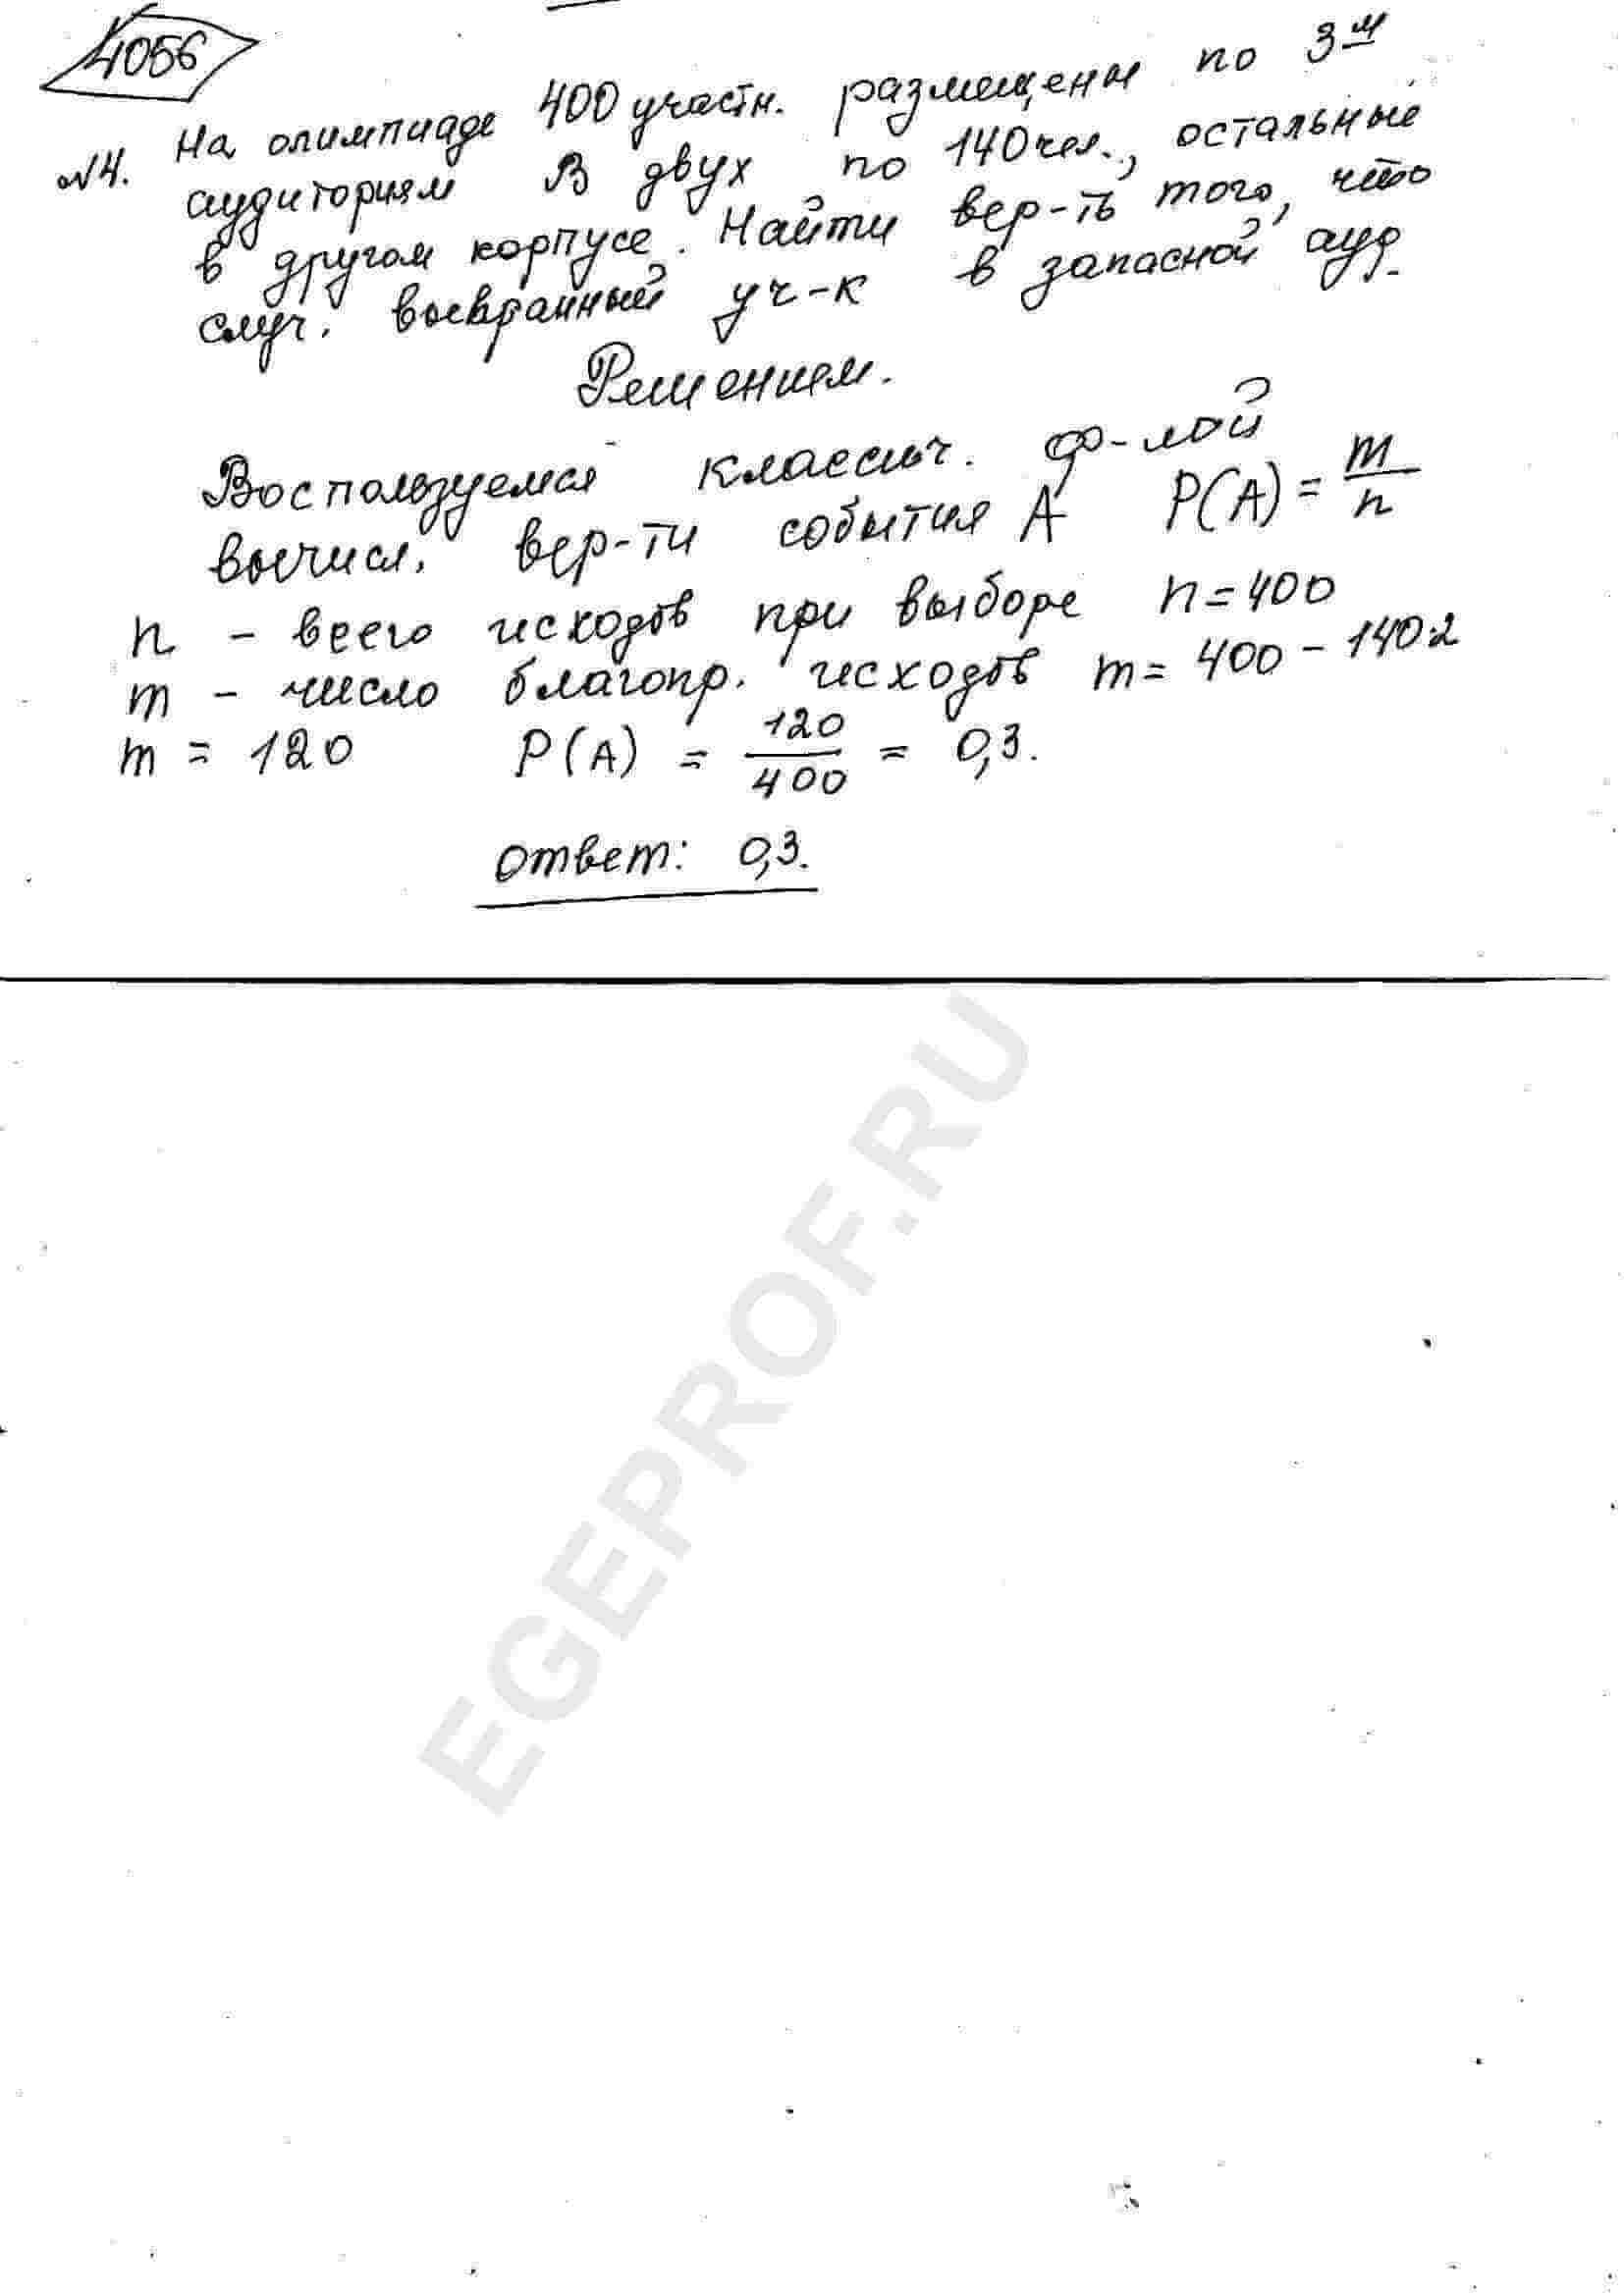 4056
№4. На олимпиаде 400 участн. размещены по 3м
аудиториям В двух по 140 чел., остальные
в другом корпусе. Найти вер-ть того, что
случ. выбранный уч-к в запасной ауд.
Решением.
Воспользуемся классич. ф-лой
вычисл. вер-ти события A P(A) = m/n
n - всего исходов при выборе n = 400
m - число благопр. исходов m = 400 - 140·2
m = 120 P(A) = 120/400 = 0,3.
Ответ: 0,3.
EGEPROF.RU